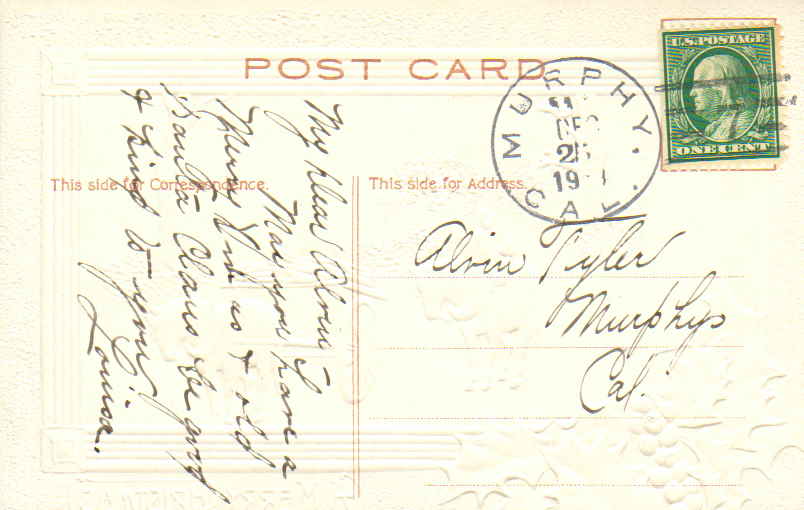 POST CARD
U.S. POSTAGE
ONE CENT
MURPHY.
DEC
25
CAL.
This side for Correspondence.
This side for Address.
My dear Alvin
May you have a
Merry Xmas & old
Santa Claus be good
& kind to you
Louisa.
Alvin Tyler
Murphys
Cal.